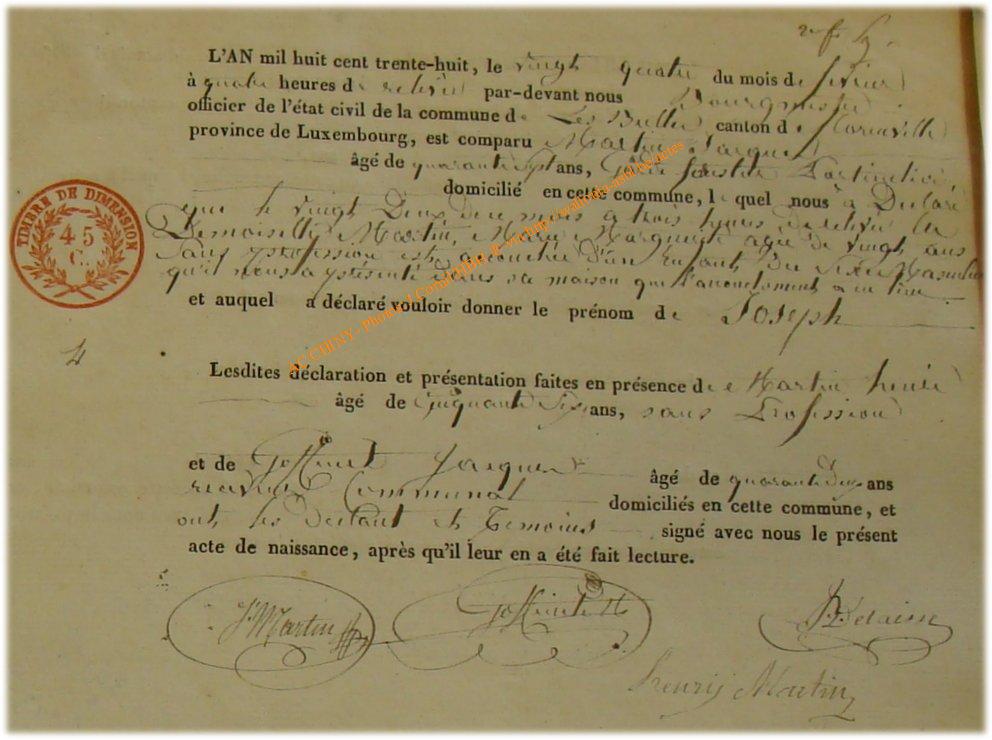 L'AN mil huit cent trente-huit, le vingt quatre du mois de fevrier
à quatre heures de relevée par-devant nous Bourgmestre
officier de l'état civil de la commune de Les Bulles canton de
province de Luxembourg, est comparu Martin Jacques
âgé de quarante sept ans,
domicilié en cette commune, lequel nous a Declaré
que le vingt Deux du mois a trois heures de relevée la
Demoiselle Martin, Marie Marguerite agée de vingt ans
sans profession est accouchée d'un Enfant du sexe Masculin
qu'il nous a presenté dans sa maison que l'accouchement a eu lieu
et auquel a déclaré vouloir donner le prénom de Joseph
4
Lesdites déclaration et présentation faites en présence de Martin henri
âgé de Cinquante Six ans, sans Profession
et de Goffinet Jacques âgé de quarante ans
receveur Communal domiciliés en cette commune, et
ont les declant et Temoins signé avec nous le présent
acte de naissance, après qu'il leur en a été fait lecture.
J Martin Goffinet
henrij Martin
TIMBRE DE DIMENSION
45
C.